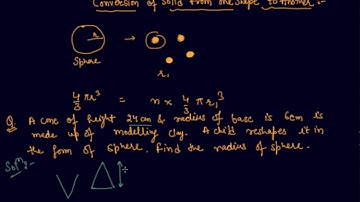 Conversion of Solid from one shape to Another :-
r
Sphere
r₁
4/3 πr³ = n × 4/3 πr₁³
Q. A cone of height 24cm & radius of base is 6cm is
made up of modelling clay. A child reshapes it in
the form of sphere. Find the radius of sphere.
Solⁿ:-